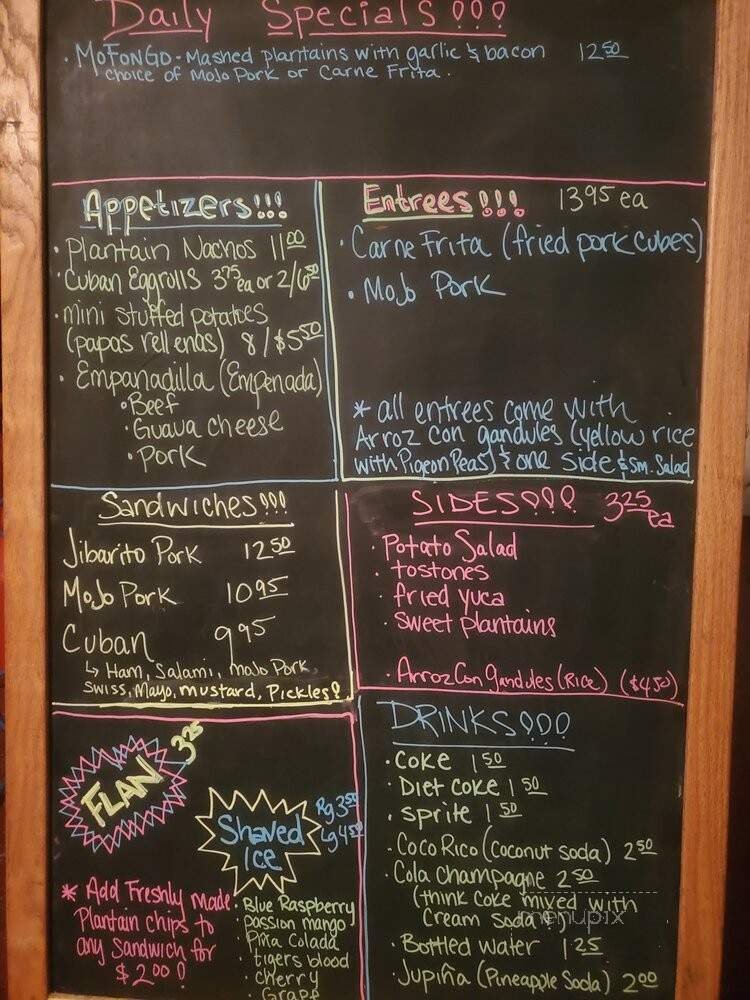 Daily Specials!!!
· MoFonGo - Mashed plantains with garlic & bacon 12.50
choice of Mojo Pork or Carne Frita.
Appetizers!!!
· Plantain Nachos 11.00
· Cuban Eggrolls 3.75 ea or 2/6.50
· mini stuffed potatoes
(papas rellenas) 8/$5.50
· Empanadilla (Empenada)
· Beef
· Guava cheese
· Pork
Entrees!!! 13.95 ea
· Carne Frita (fried pork cubes)
· Mojo Pork
* all entrees come with
Arroz con gandules (yellow rice
with Pigeon Peas) & one side & sm. Salad
Sandwiches!!!
Jibarito Pork 12.50
Mojo Pork 10.95
Cuban 9.95
↳ Ham, Salami, mojo Pork,
Swiss, Mayo, mustard, Pickles!
SIDES!!! 3.25 ea
· Potato Salad
· tostones
· fried yuca
· sweet plantains
· Arroz Con gandules (Rice) ($4.50)
FLAN 3.25
Shaved Ice
Rg 3.50
Lg 4.50
* Add Freshly made
Plantain chips to
any Sandwich for
$2.00!
· Blue Raspberry
· passion mango
· Piña Colada
· tigers blood
· cherry
· Grape
DRINKS!!!
· Coke 1.50
· Diet Coke 1.50
· Sprite 1.50
· Coco Rico (coconut soda) 2.50
· Cola champagne 2.50
(think coke mixed with
Cream Soda!)
· Bottled water 1.25
· Jupiña (Pineapple Soda) 2.00
menupix